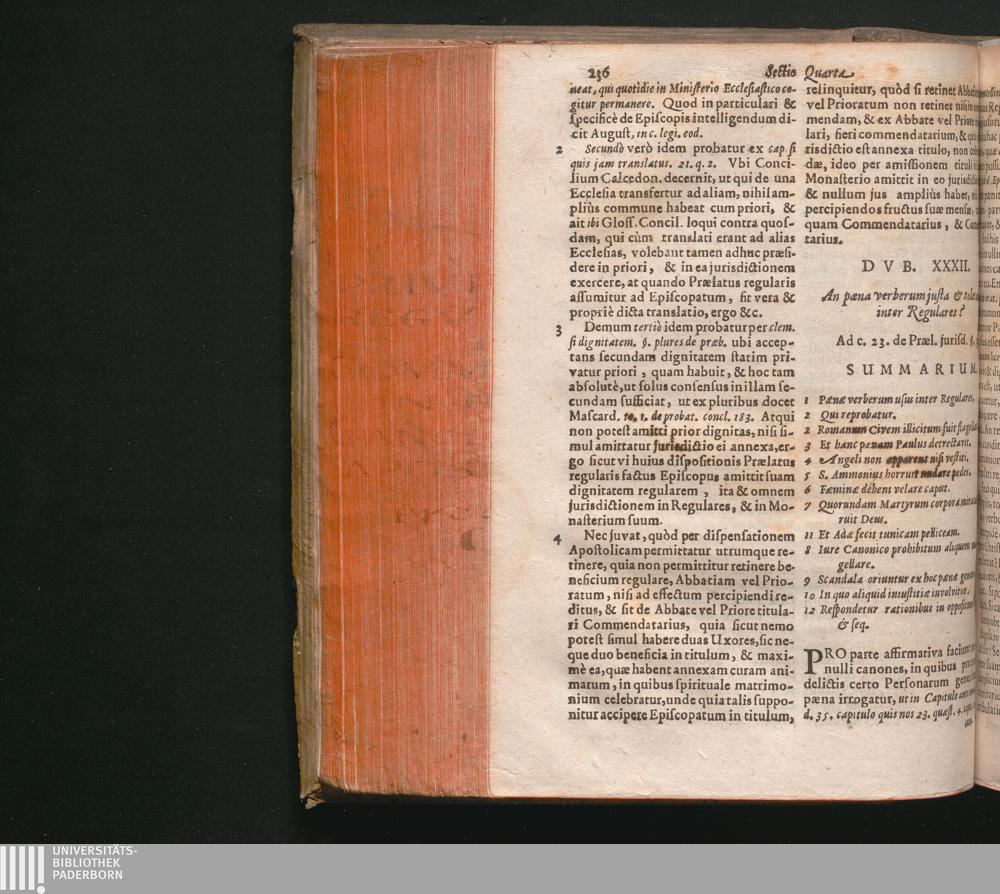 236 Sectio Quarta
neat, qui quotidie in Ministerio Ecclesiastico co-
gitur permanere. Quod in particulari &
specificè de Episcopis intelligendum di-
cit August, in c. legi. eod.
2 Secundò verò idem probatur ex cap. si
quis jam translatus. 21. q. 2. Vbi Conci-
lium Calcedon. decernit, ut qui de una
Ecclesia transfertur ad aliam, nihil am-
pliùs commune habeat cum priori, &
ait ibi Gloss. Concil. loqui contra quos-
dam, qui cùm translati erant ad alias
Ecclesias, volebant tamen adhuc præsi-
dere in priori, & in ea jurisdictionem
exercere, at quando Prælatus regularis
assumitur ad Episcopatum, fit vera &
propriè dicta translatio, ergo &c.
3 Demum tertiò idem probatur per clem.
si dignitatem. §. plures de præb. ubi accep-
tans secundam dignitatem statim pri-
vatur priori, quam habuit, & hoc tam
absolutè, ut solus consensus in illam se-
cundam sufficiat, ut ex pluribus docet
Mascard. to. 1. de probat. concl. 183. Atqui
non potest amitti prior dignitas, nisi si-
mul amittatur jurisdictio ei annexa, er-
go sicut vi huius dispositionis Prælatus
regularis factus Episcopus amittit suam
dignitatem regularem, ita & omnem
jurisdictionem in Regulares, & in Mo-
nasterium suum.
4 Nec juvat, quòd per dispensationem
Apostolicam permittatur utrumque re-
tinere, quia non permittitur retinere be-
neficium regulare, Abbatiam vel Prio-
ratum, nisi ad effectum percipiendi re-
ditus, & fit de Abbate vel Priore titula-
ri Commendatarius, quia sicut nemo
potest simul habere duas Uxores, sic ne-
que duo beneficia in titulum, & maxi-
mè ea, quæ habent annexam curam ani-
marum, in quibus spirituale matrimo-
nium celebratur, unde quia talis suppo-
nitur accipere Episcopatum in titulum,
relinquitur, quòd si retinet
vel Prioratum non retinet nisi in
mendam, & ex Abbate vel Priore
lari, fieri commendatarium, &
risdictio est annexa titulo, non
dæ, ideo per amissionem tituli
Monasterio amittit in eo
& nullum jus ampliùs habet,
percipiendos fructus suæ mensæ,
quam Commendatarius, &
tarius.
DVB. XXXII.
An pæna verberum justa &
inter Regulares?
Ad c. 23. de Præl. jurisd. §.
SUMMARIUM.
1 Pænæ verberum usus inter Regulares.
2 Qui reprobatur.
2 Romanum Civem illicitum fuit
3 Et hanc pænam Paulus detrectavit.
4 Angeli non apparent nisi vestiti.
5 S. Ammonius horruit nudare pedes.
6 Fæminæ debent velare caput.
7 Quorundam Martyrum corpora
ruit Deus.
11 Et Adæ fecit tunicam pelliceam.
8 Iure Canonico prohibitum aliquem
gellare.
9 Scandala oriuntur ex hoc pænæ
10 In quo aliquid iniustitiæ involvitur.
12 Respondetur rationibus in
& seq.
PRO parte affirmativa faciunt
nulli canones, in quibus
delictis certo Personarum
pæna irrogatur, ut in Capitulo
d. 35. capitulo quis nos 23. quæst. 4.
UNIVERSITÄTS-
BIBLIOTHEK
PADERBORN